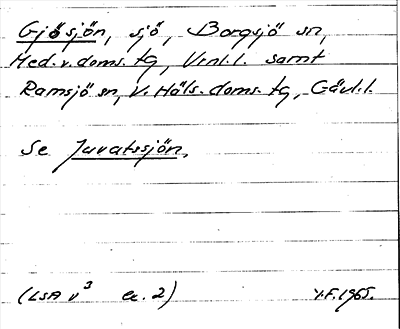 Gjösjön, sjö, Borgsjö sn,
Med.v.doms. tg, Vnl.l. samt
Ramsjö sn, V. Häls. doms. tg, Gävl.l.
Se Juvatssjön.
(LSA V³ a. 2)
Y.F. 1965.